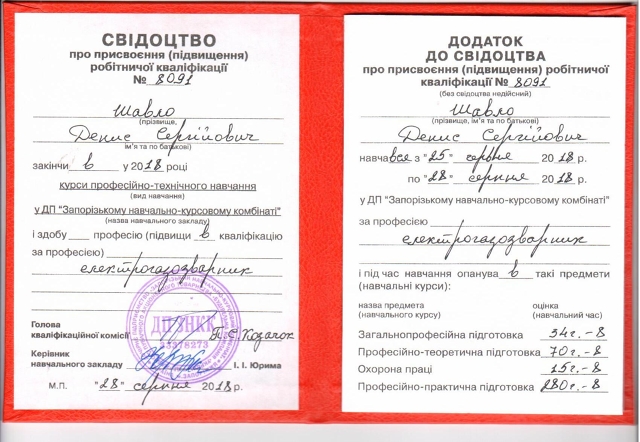 СВІДОЦТВО
про присвоєння (підвищення)
робітничої кваліфікації
№ 8091
Шавло
(прізвище,
Денис Сергійович
ім'я та по батькові)
закінчив у 2018 році
курси професійно-технічного навчання
(вид навчання)
у ДП "Запорізькому навчально-курсовому комбінаті"
(назва навчального закладу)
і здобу професію (підвищив кваліфікацію
за професією)
електрогазозварник
Голова
кваліфікаційної комісії П.С. Козачок
ДП ЗНКК
Керівник
навчального закладу І. І. Юрима
М.П. "28" серпня 2018 р.
ДОДАТОК
ДО СВІДОЦТВА
про присвоєння (підвищення) робітничої
кваліфікації № 8091
(без свідоцтва недійсний)
Шавло
(прізвище, ім'я та по батькові)
Денис Сергійович
навчався з "25" червня 2018 р.
по "28" серпня 2018 р.
у ДП "Запорізькому навчально-курсовому комбінаті"
за професією
електрогазозварник
і під час навчання опанував такі предмети
(навчальні курси):
назва предмета оцінка
(навчального курсу) (навчальний час)
Загальнопрофесійна підготовка 34г.-8
Професійно-теоретична підготовка 70г.-8
Охорона праці 15г.-8
Професійно-практична підготовка 280г.-8